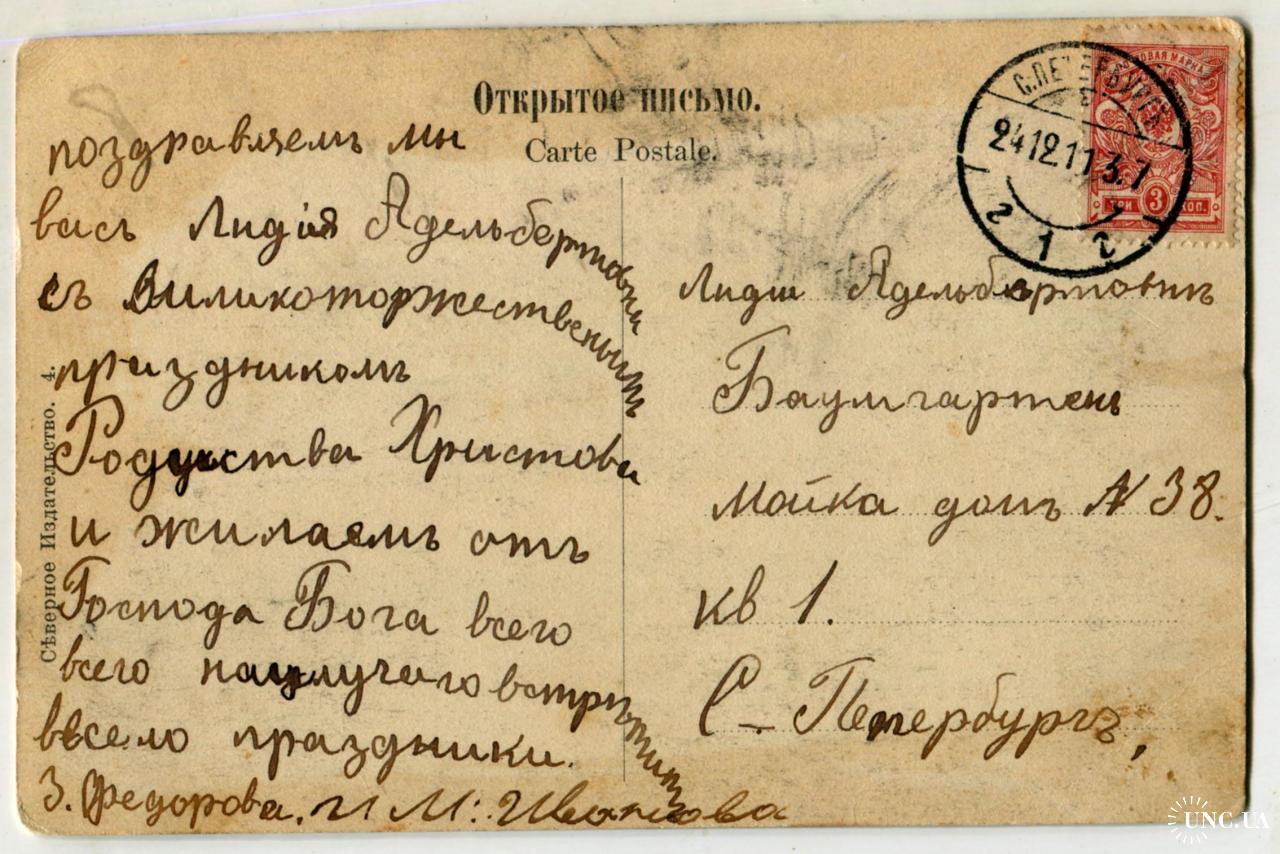 Открытое письмо.
Carte Postale.
поздравляемъ мы
васъ Лидія Адельбертовна
съ Виликоторжественымъ
праздникомъ
Рождества Христова
и жилаемъ отъ
Господа Бога всего
всего наилучаго встритить
весело праздники.
З. Федорова. и М: Иванова
Сѣверное Издательство. 4.
С.ПЕТЕРБУРГЪ
24.12.11
2 1 2
ПОЧТОВАЯ МАРКА
ТРИ 3 КОП.
Лидіи Адельбертовнѣ
Баумгартенъ
Мойка домъ N 38.
кв 1.
С-Петербургъ,
UNC.UA